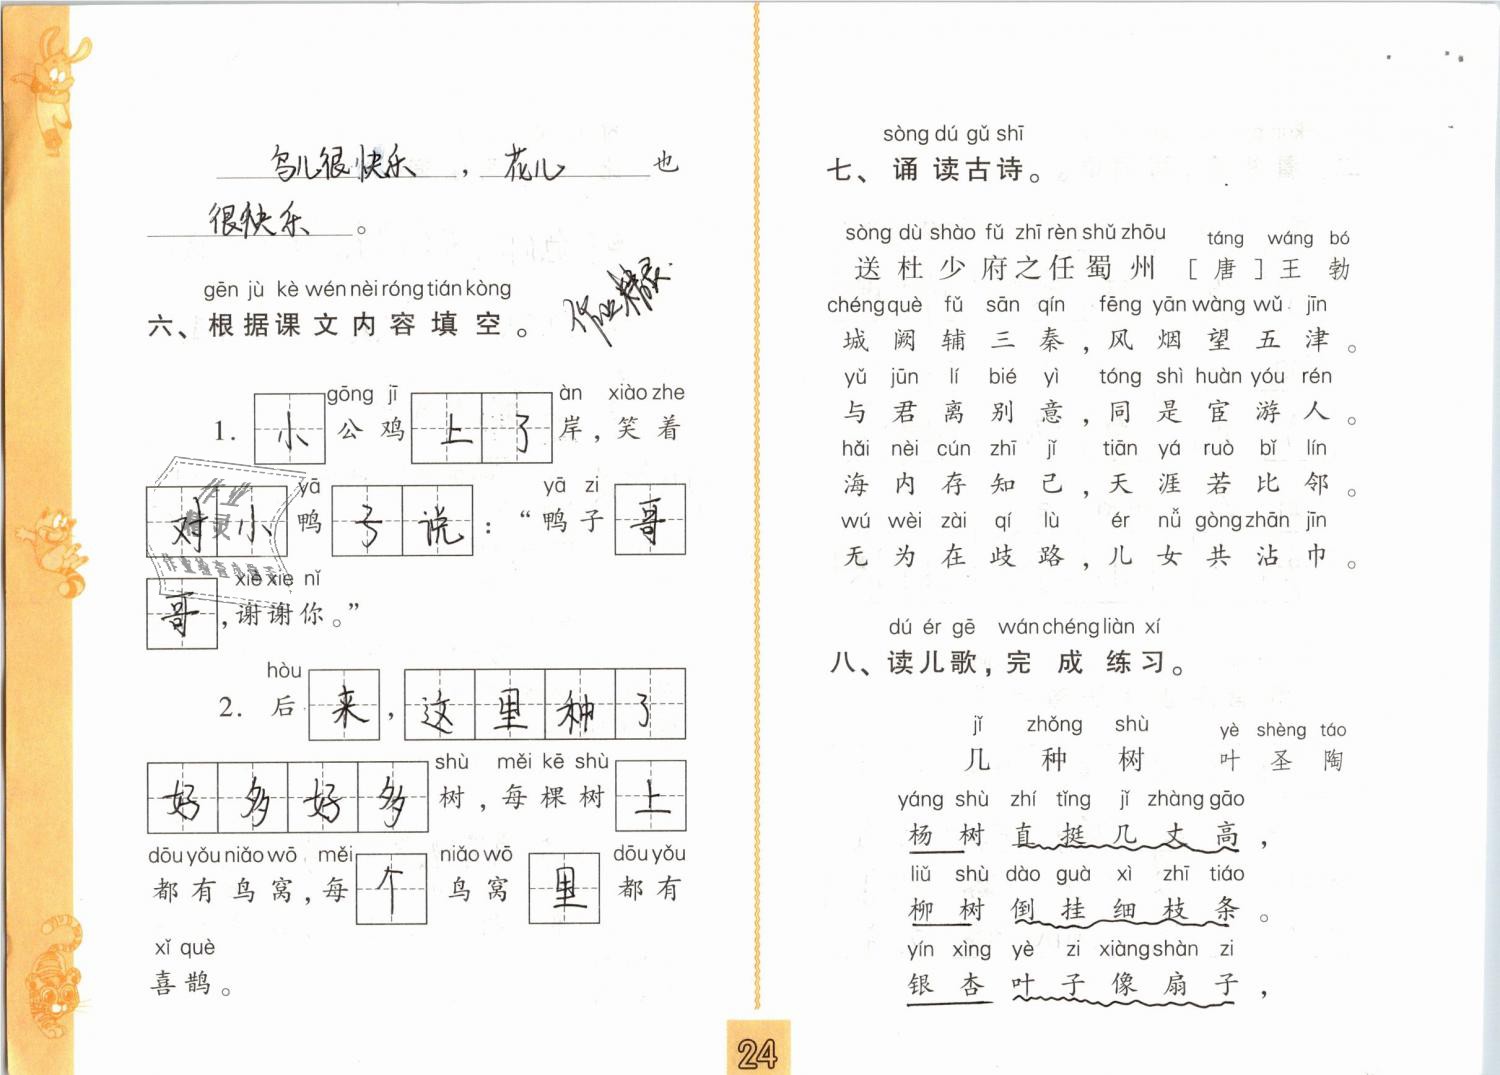 鸟儿很快乐，花儿也
很快乐。
gēn jù kè wén nèi róng tián kòng
六、根据课文内容填空。
gōng jī àn xiào zhe
1. 小公鸡上了岸，笑着
yā yā zi
对小鸭子说：“鸭子哥
xiè xie nǐ
哥，谢谢你。”
hòu
2. 后来，这里种了
shù měi kē shù
好多好多树，每棵树上
dōu yǒu niǎo wō měi niǎo wō dōu yǒu
都有鸟窝，每个鸟窝里都有
xǐ què
喜鹊。
作业精灵
作业
精灵
sòng dú gǔ shī
七、诵读古诗。
sòng dù shào fǔ zhī rèn shǔ zhōu táng wáng bó
送杜少府之任蜀州 [唐]王勃
chéng què fǔ sān qín fēng yān wàng wǔ jīn
城阙辅三秦，风烟望五津。
yǔ jūn lí bié yì tóng shì huàn yóu rén
与君离别意，同是宦游人。
hǎi nèi cún zhī jǐ tiān yá ruò bǐ lín
海内存知己，天涯若比邻。
wú wèi zài qí lù ér nǚ gòng zhān jīn
无为在歧路，儿女共沾巾。
dú ér gē wán chéng liàn xí
八、读儿歌，完成练习。
jǐ zhǒng shù yè shèng táo
几种树 叶圣陶
yáng shù zhí tǐng jǐ zhàng gāo
杨树直挺几丈高，
liǔ shù dào guà xì zhī tiáo
柳树倒挂细枝条。
yín xìng yè zi xiàng shàn zi
银杏叶子像扇子，
24